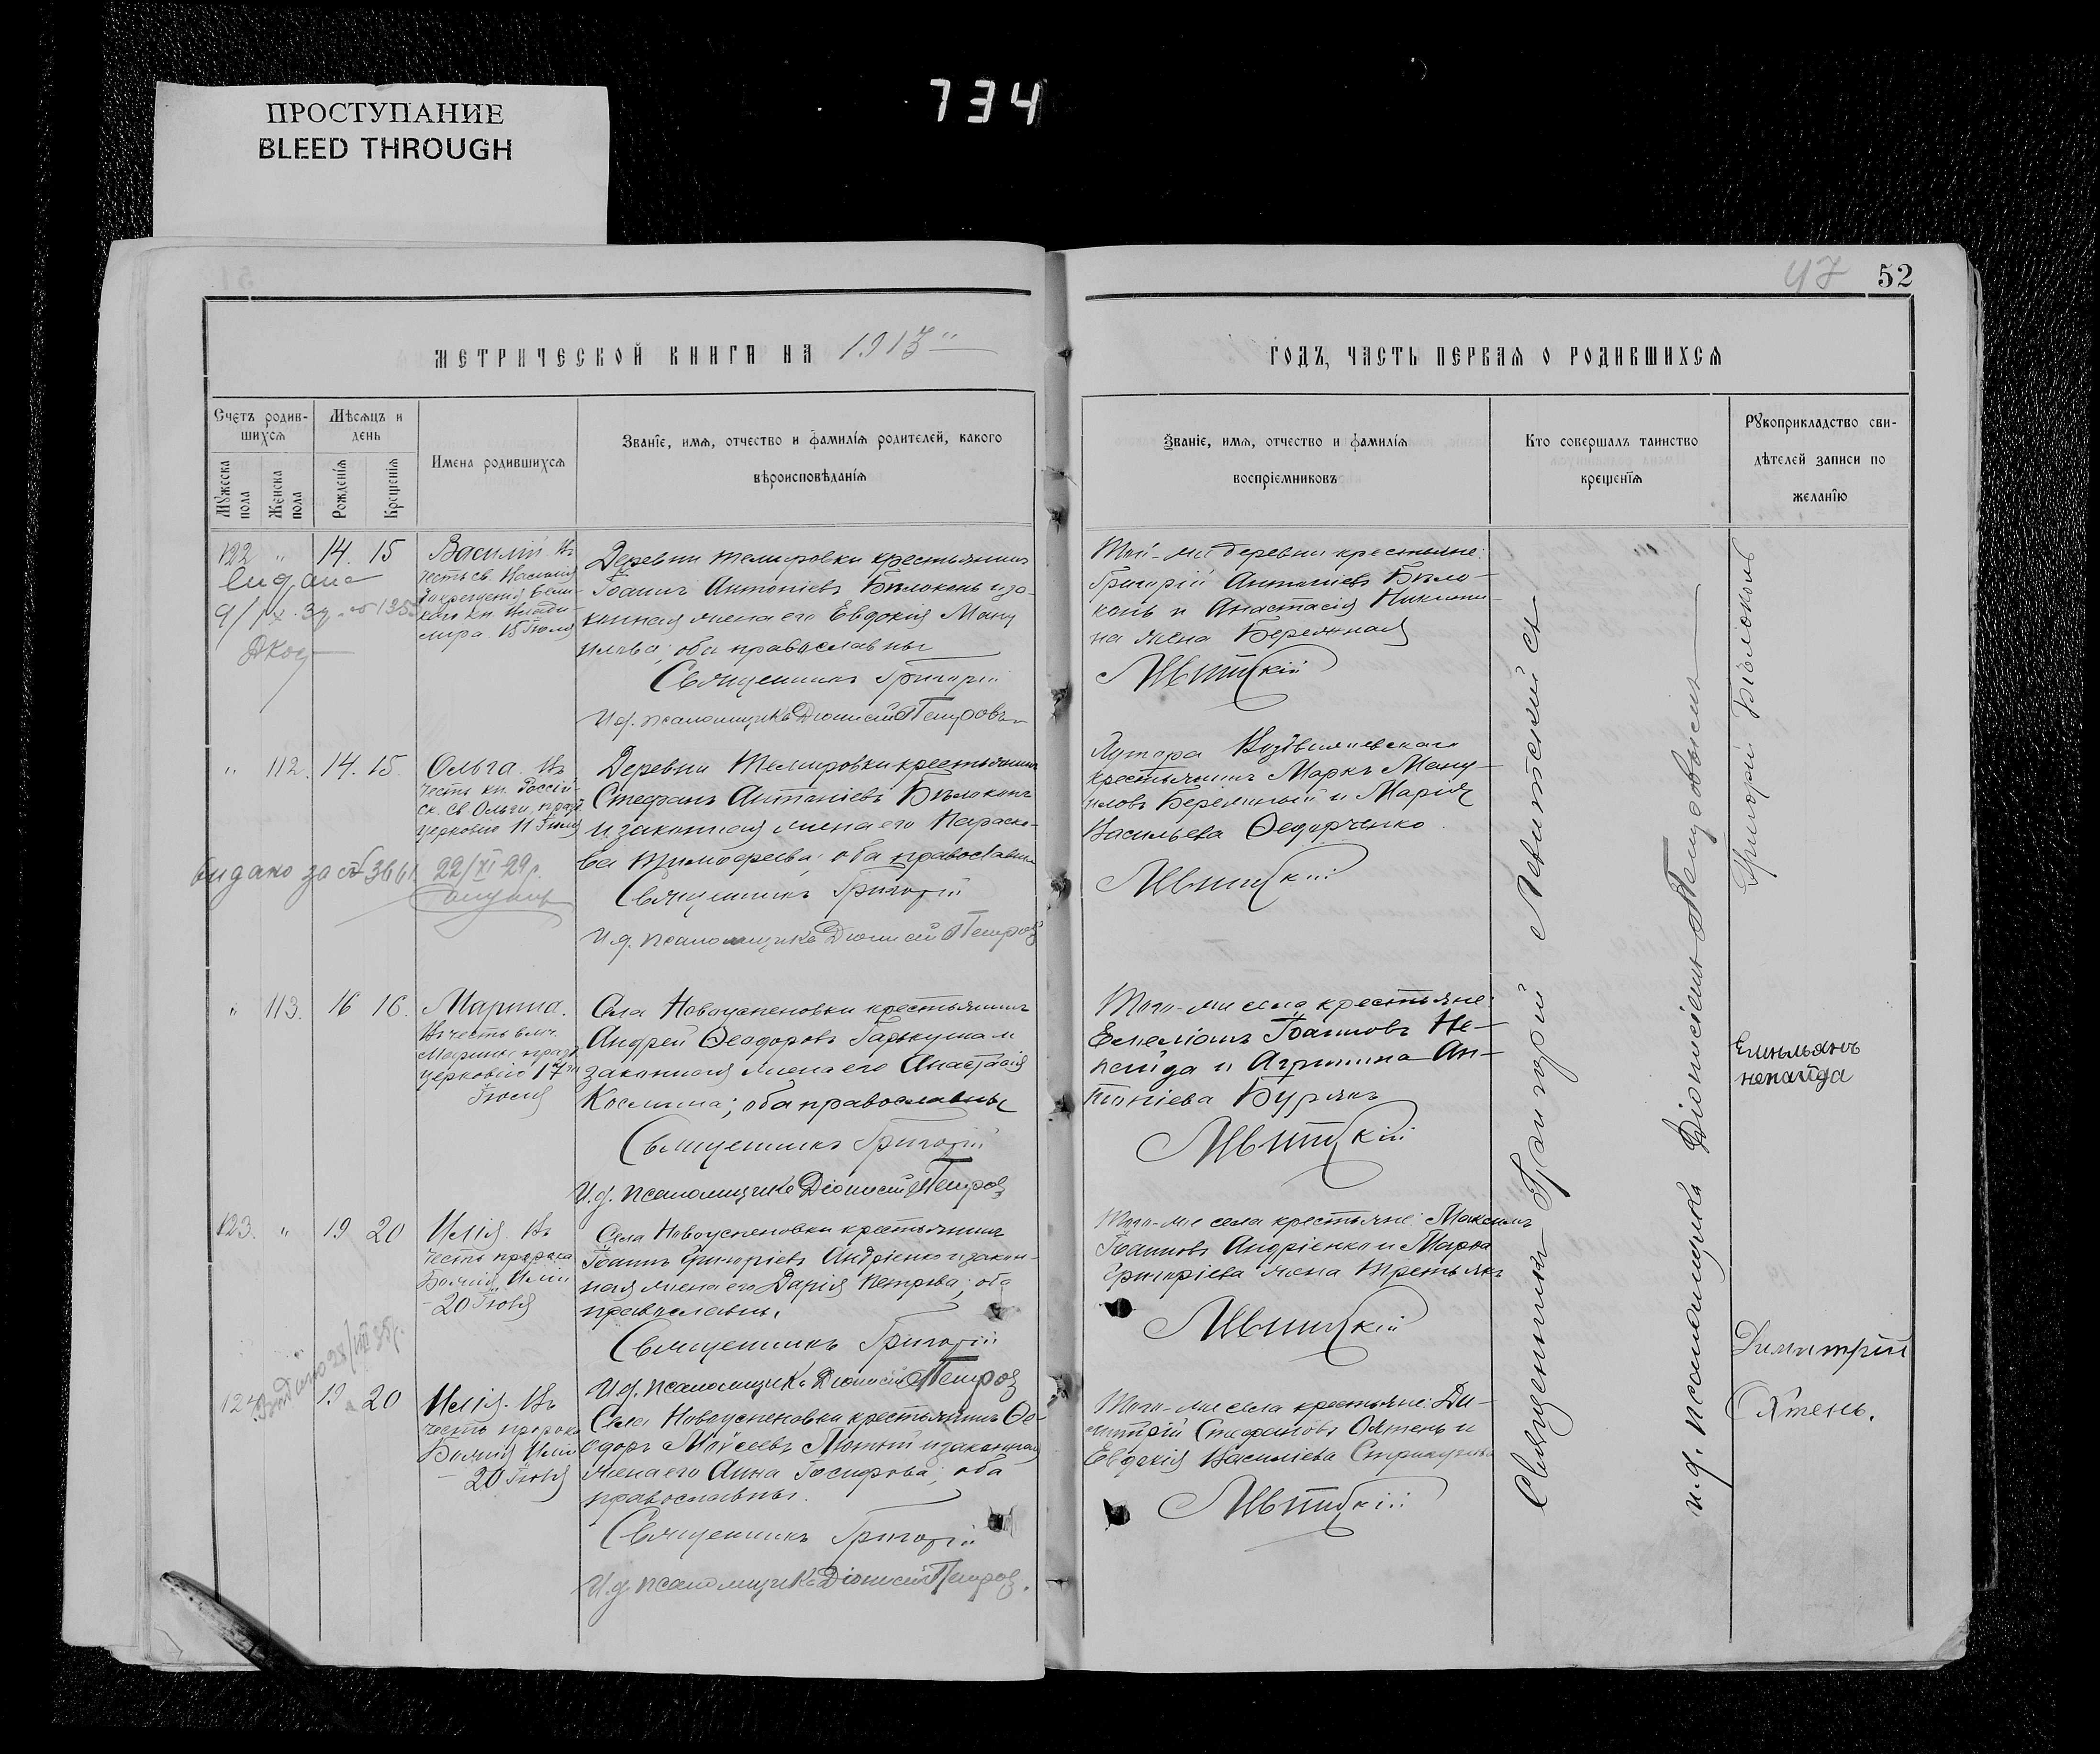 734
ПРОСТУПАНИЕ
BLEED THROUGH
47 52
МЕТРИЧЕСКОЙ КНИГИ НА 1913
ГОДЪ, ЧАСТЬ ПЕРВАЯ О РОДИВШИХСЯ
Счетъ родив-
шихся
Мѣсяцъ и
день
Мужеска
пола
Женска
пола
Рожденія
Крещенія
Имена родившихся
Званіе, имя, отчество и фамилія родителей, какого
вѣроисповѣданія
Званіе, имя, отчество и фамилія
воспріемниковъ
Кто совершалъ таинство
крещенія
Рукоприкладство сви-
дѣтелей записи по
желанію
122 " 14. 15
Василій. Въ
честь св. Василія
кого кн. Влади-
мира 15 Іюля
Деревни Темировки крестьянинъ
Іоаннъ Антоніевъ Бѣлоконь и за-
конная жена его Евдокія Ману
илова; оба православны
Священникъ Григорій
И.д. псаломщика Діонисій Петров
Той-же деревни крестьяне:
Григорій Антоніевъ Бѣло-
конь и Анастасія Никити-
на жена Бережная
Левитскій
" 112. 14. 15.
Ольга. Въ
честь кн. Россій-
ск. св Ольги, празд.
церковію 11 Іюля
видано за № 3661 22/XI-29р.
Деревни Темировки крестьянинъ
Стефанъ Антоніевъ Бѣлоконь
и законная жена его Параске-
ва Тимофеева; оба православны
Священникъ Григорій
И.д. псаломщика Діонисій Петров
Хутора Воздвижевскаго
крестьянинъ Маркъ Ману-
иловъ Бережный и Марія
Васильева Ѳедорченко
Левитскій
" 113. 16 16.
Марина.
Въ честь влмч.
Марины празд.
церковію 17го
Іюля
Села Новоуспеновки крестьянинъ
Андрей Ѳеодоровъ Гаркуша и
законная жена его Анастасія
Косьмина; оба православны
Священникъ Григорій
И.д. псаломщика Діонисій Петров
Того-же села крестьяне:
Емеліанъ Іоанновъ Не-
пейда и Агрипина Ан-
тоніева Бурякъ
Левитскій
123. " 19 20
Илія. Въ
честь пророка
Божія Иліи
-20 Іюля
Села Новоуспеновки крестьянинъ
Іоаннъ Григоріевъ Андріенко и закон-
ная жена его Дарія Петрова; оба
православны.
Священникъ Григорій
И.д. псаломщика Діонисій Петров
Того-же села крестьяне: Максимъ
Іоанновъ Андріенко и Марѳа
Григоріева жена Третьякъ
Левитскій
124 19 20
Илія. Въ
честь пророка
Божія Иліи
- 20 Іюля
Села Новоуспеновки крестьянинъ Ѳе-
одоръ Моѵсеевъ Лютый и законная
жена его Анна Іосифова; оба
православны.
Священникъ Григорій
И.д. псаломщика Діонисій Петров.
Того-же села крестьяне: Ди-
митрій Стефановъ Охтень и
Евдокія Василіева
Левитскій
Священникъ Григорій Левитскій съ
и.д. псаломщика Діонисіемъ
Григорій Біолоконь
Емыльянъ
непайда
Димитрій
Охтень.